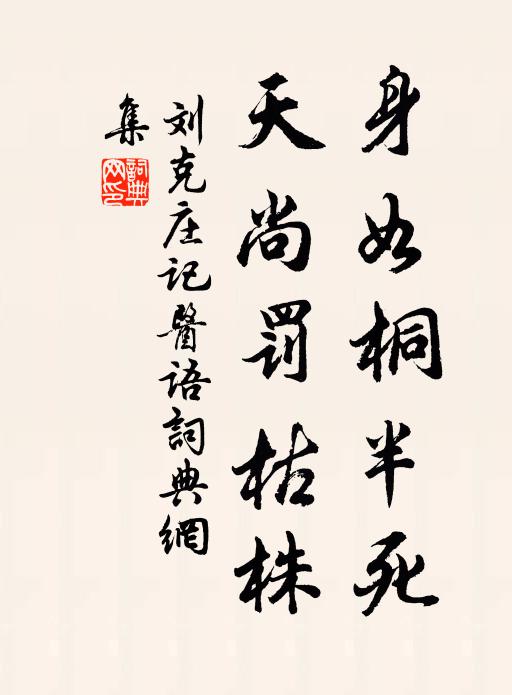 身如桐半死
天尚罰枯株
刘克庄記醫語詞典網
集
詞典
网印